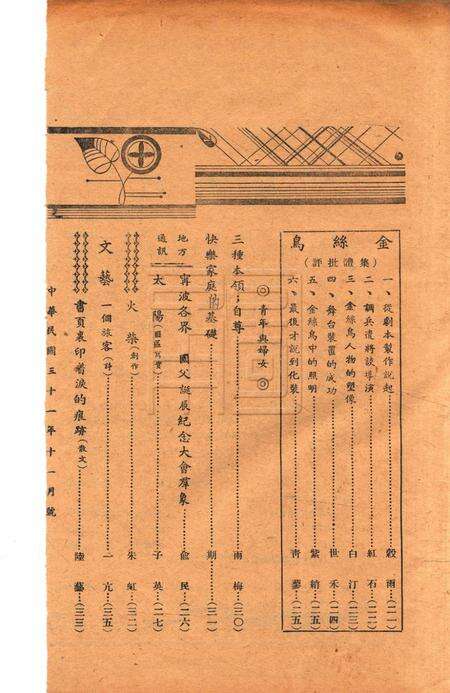 金絲鳥
（集體批評）
一、從劇本製作說起……穀雨（二一）
二、調兵遣將談導演……紅石（二二）
三、金絲鳥人物的塑像……白汀（二三）
四、舞台裝置的成功……世禾（二四）
五、金絲鳥中的照明……紫綃（二五）
六、最後才說到化裝……青藜（二五）
◎青年與婦女◎
三種本領；自尊……雨梅（三〇）
快樂家庭的基礎……期（三一）
地方通訊
寧波各界 國父誕辰紀念大會羣象……俞民（二六）
太陽（囸區寫實）……子英（二七）
火柴（創作）……朱虹（三二）
文藝
一個旅客（詩）……一亢（三五）
書頁裏印着淚的痕跡（散文）……陸藝（三三）
中華民國三十一年十一月號